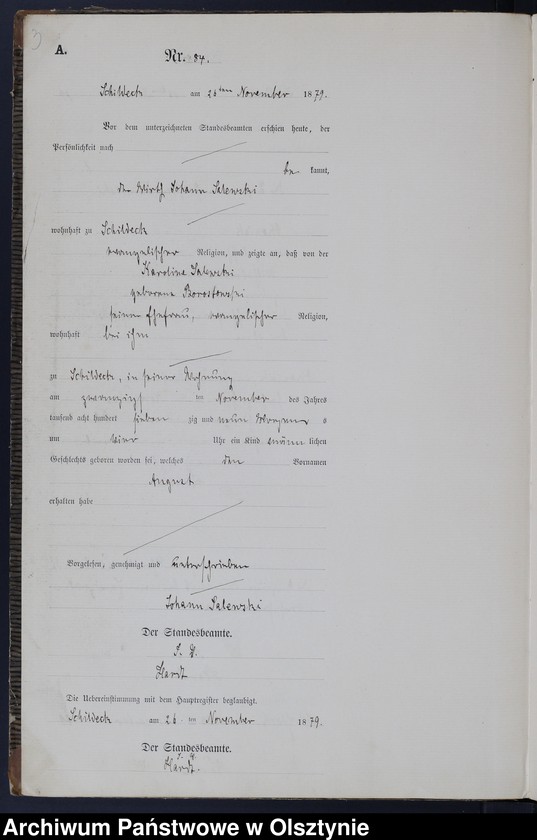 A.
Nr. 84.
Schildeck am 26ten November 1879.
Vor dem unterzeichneten Standesbeamten erschien heute, der
Persönlichkeit nach
be kannt,
der Wirth Johann Salewski
wohnhaft zu Schildeck
evangelischer Religion, und zeigte an, daß von der
Karoline Salewski
geborene Borostowski
seiner Ehefrau, evangelischer Religion,
wohnhaft bei ihm
zu Schildeck, in seiner Wohnung
am zwanzigsten November des Jahres
tausend acht hundert sieben zig und neun Morgens
um vier Uhr ein Kind männ lichen
Geschlechts geboren worden sei, welches den Vornamen
August
erhalten habe
Vorgelesen, genehmigt und unterschrieben
Johann Salewski
Der Standesbeamte.
Hardt
Die Uebereinstimmung mit dem Hauptregister beglaubigt.
Schildeck am 26 ten November 1879.
Der Standesbeamte.
Hardt.
Archiwum Państwowe w Olsztynie